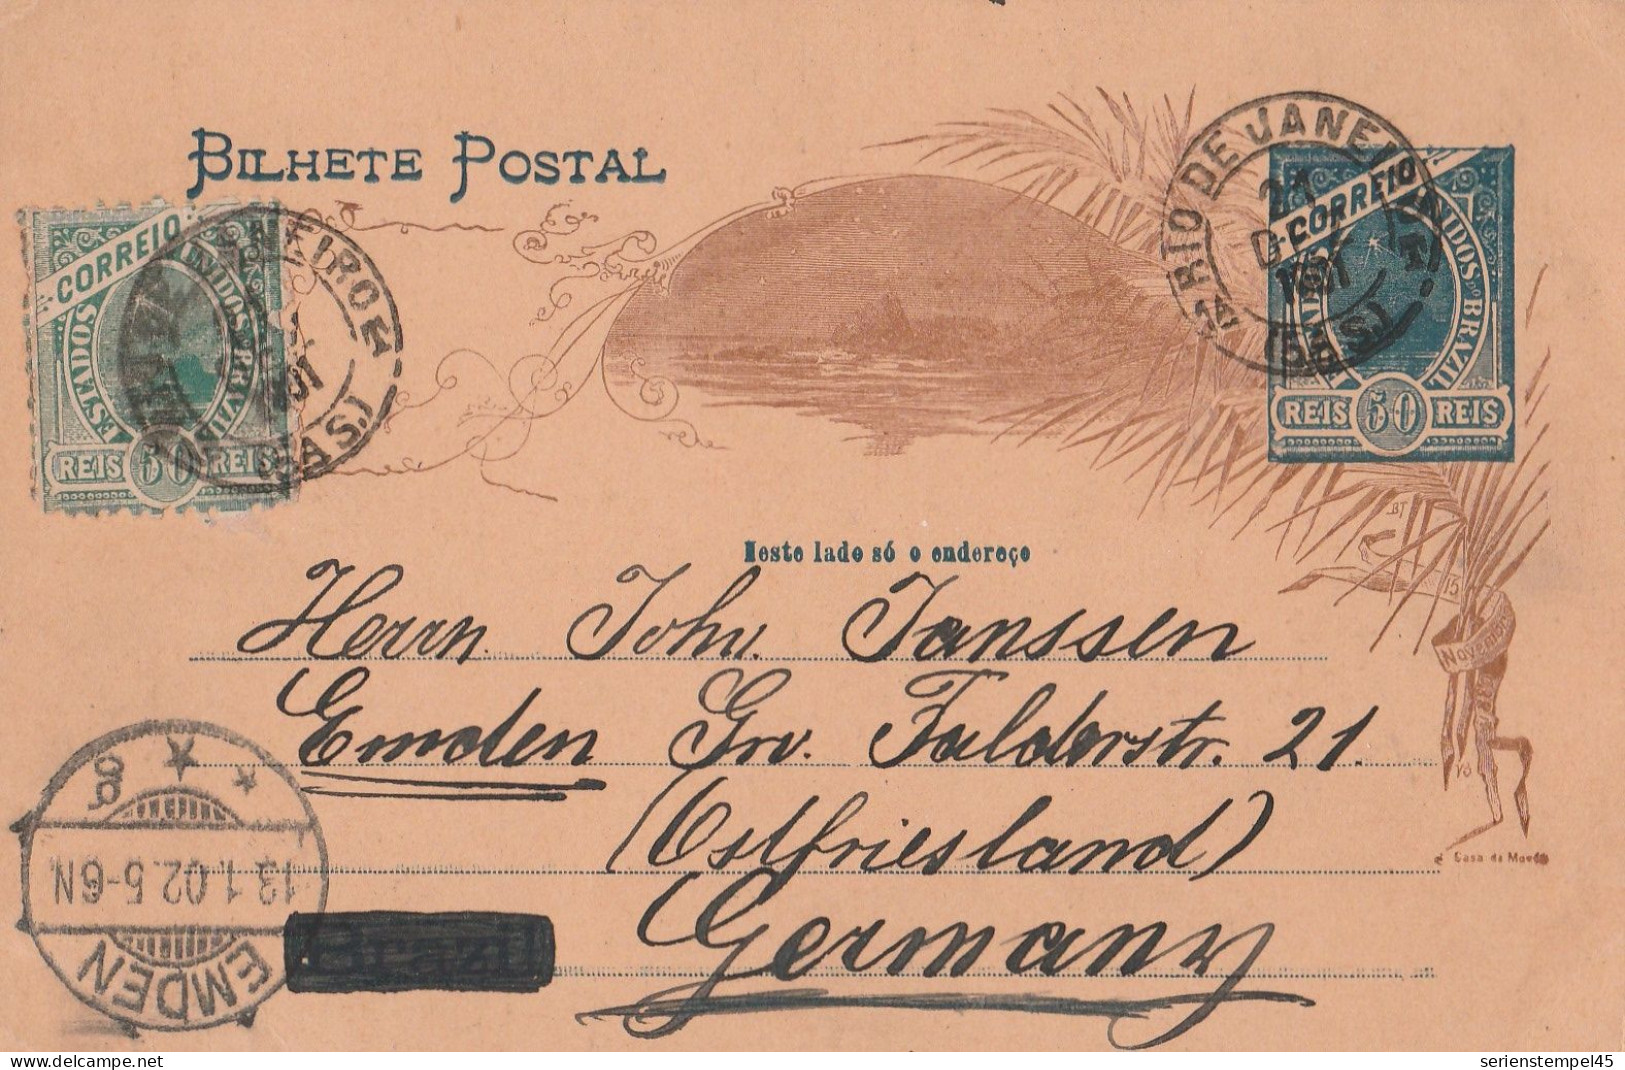 BILHETE POSTAL
CORREIO
ESTADOS UNIDOS DO BRAZIL
REIS 50 REIS
RIO DE JANEIRO
21
DEZ
1901
(5ª S.)
CORREIO
ESTADOS UNIDOS DO BRAZIL
REIS 50 REIS
JANEIRO
1901
(5ª S.)
Neste lado só o endereço
15
Novembro
Herrn Joh. Janssen
Emden Gr. Falderstr. 21.
(Ostfriesland)
Germany
Brazil
EMDEN
13.1.02.5-6N.
Casa da Moeda
serienstempel45